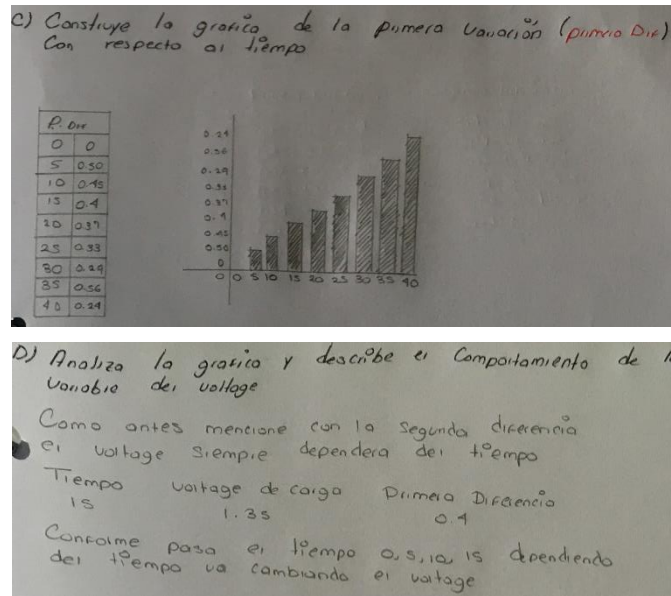 C) Construye la grafica de la primera variación (primera Dif)
Con respecto al tiempo
P. Dif
0 0
5 0.50
10 0.45
15 0.4
20 0.37
25 0.33
30 0.29
35 0.56
40 0.24
0.24
0.56
0.29
0.33
0.37
0.4
0.45
0.50
0
0 0 5 10 15 20 25 30 35 40
D) Analiza la grafica y describe el Comportamiento de l
variable del voltage
Como antes mencione con la segunda diferencia
el voltage siempre dependera del tiempo
Tiempo voltage de carga Primera Diferencia
15 1.35 0.4
Conforme pasa el tiempo 0, 5, 10, 15 dependiendo
del tiempo va cambiando el voltage